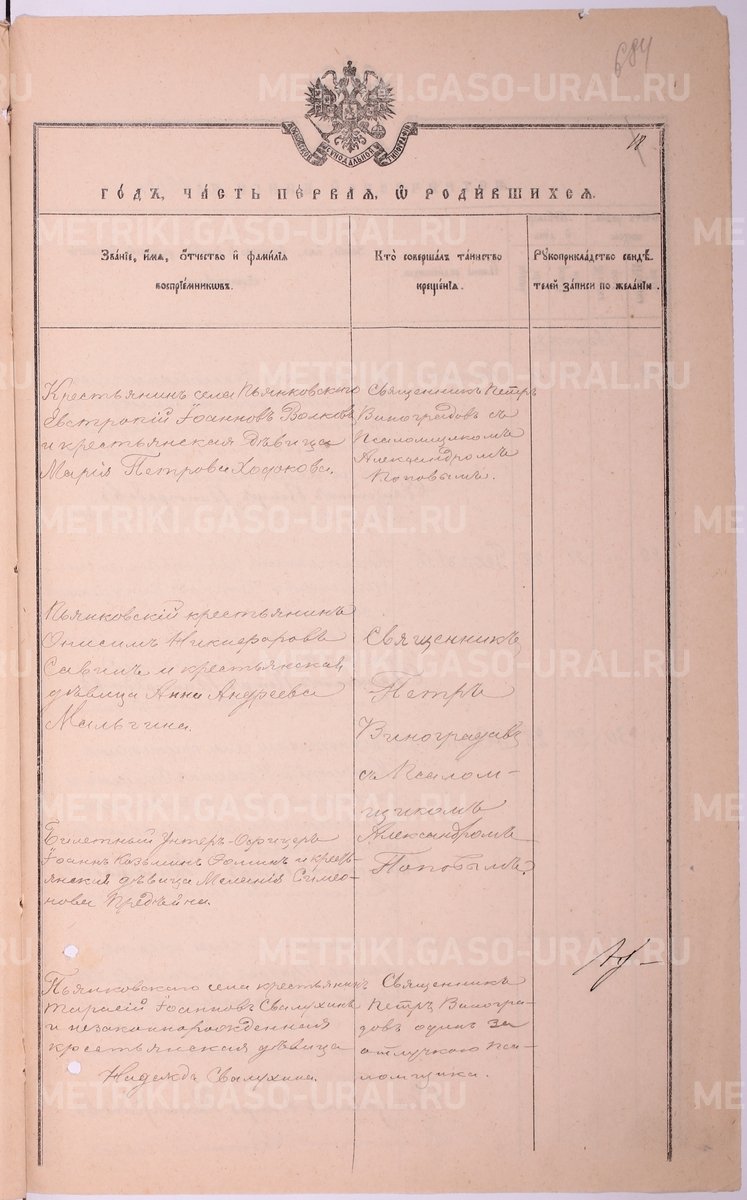 684
18
МОСКОВСКОЙ СѴНОДАЛЬНОЙ ТИПОГРАФІИ
ГОДЪ, ЧАСТЬ ПЕРВАЯ, Ѡ РОДИВШИХСЯ.
Званіе, имя, отчество и фамилія
воспріемниковъ.
Кто совершалъ таинство
крещенія.
Рукоприкладство свидѣ-
телей записи по желанію.
Крестьянинъ села Пьянковскаго
Евстропій Іоанновъ Волковъ
и крестьянская дѣвица
Марія Петрова Ходокова.
Священникъ Петръ
Виноградовъ съ
Псаломщикомъ
Александромъ
Поповымъ.
Пьянковскій крестьянинъ
Онисимъ Никифоровъ
Савинъ и крестьянская
дѣвица Анна Андреева
Мальгина.
Священникъ
Петръ
Виноградовъ
съ Псалом-
щикомъ
Александромъ
Поповымъ.
Билетный Унтеръ-Офицеръ
Іоаннъ Козьминъ и крес-
янская дѣвица Меланія Симео-
нова
Пьянковскаго села крестьянинъ
Тарасій Іоанновъ Свалухинъ
и незаконнорожденная
кресетьянская дѣвица
Надежда Свалухина.
Священникъ
Петръ Виногра-
довъ одинъ за
отлучкою пса-
ломщика.
METRIKI.GASO-URAL.RU